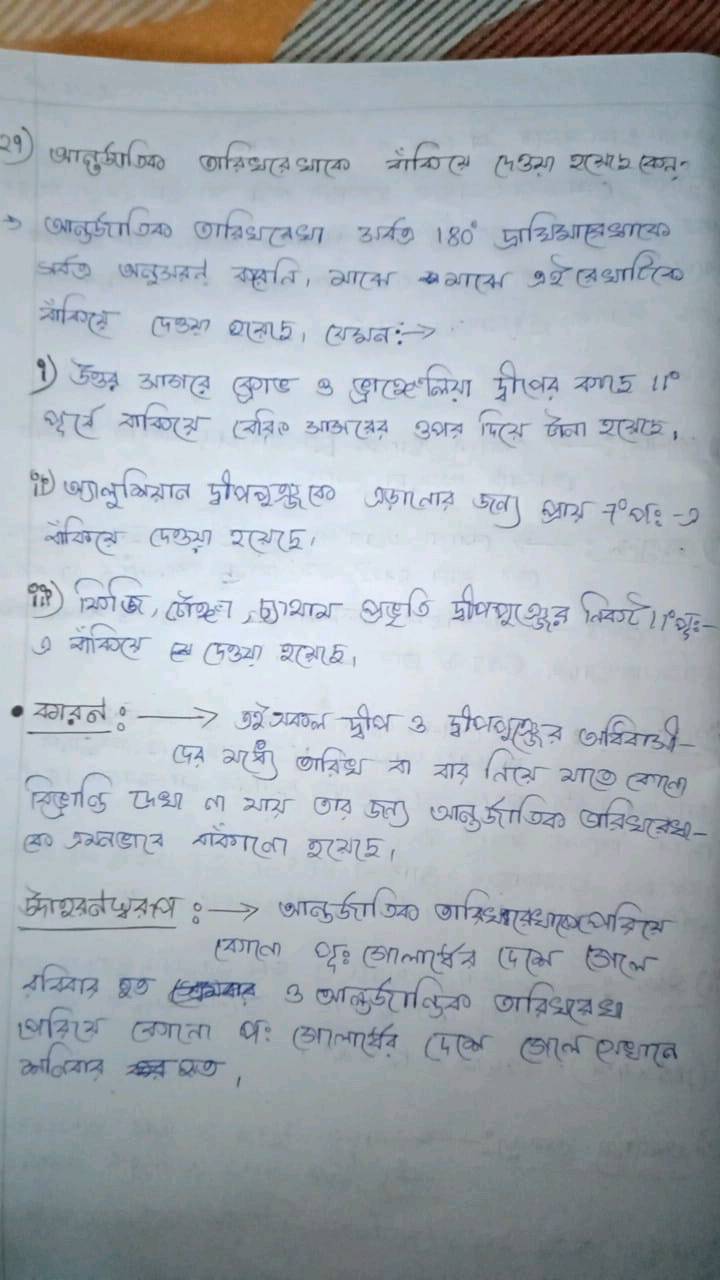 ২৭) আন্তর্জাতিক তারিখরেখাকে বাঁকিয়ে দেওয়া হয়েছে কেন?
→ আন্তর্জাতিক তারিখরেখা সর্বত্র 180° দ্রাঘিমারেখাকে
সর্বত্র অনুসরণ করেনি, মাঝে মাঝে এই রেখাটিকে
বাঁকিয়ে দেওয়া হয়েছে, যেমন:→
i) উত্তর সাগরে ও দ্বীপের কাছে 11°
পূর্বে বাকিয়ে বেরিং সাগরের ওপর দিয়ে টানা হয়েছে,
ii) অ্যালুশিয়ান দ্বীপপুঞ্জকে এড়ানোর জন্য প্রায় 7° পঃ -এ
বাঁকিয়ে দেওয়া হয়েছে,
iii) ফিজি, টোঙ্গা, চ্যাথাম প্রভৃতি দ্বীপপুঞ্জের নিকট 11° পূঃ-
এ বাঁকিয়ে দেওয়া হয়েছে,
• কারন: → এই সকল দ্বীপ ও দ্বীপপুঞ্জের অধিবাসী-
দের মধ্যে তারিখ বা বার নিয়ে যাতে কোনো
বিভ্রান্তি দেখা না যায় তার জন্য আন্তর্জাতিক তারিখরেখা-
কে এমনভাবে বাঁকানো হয়েছে,
উদাহরনস্বরূপ: → আন্তর্জাতিক তারিখরেখাকে পেরিয়ে
কোনো পূঃ গোলার্ধের দেশে গেলে
রবিবার হত ও আন্তর্জাতিক তারিখরেখা
পেরিয়ে কোনো পঃ গোলার্ধের দেশে গেলে সেখানে
শনিবার হত,